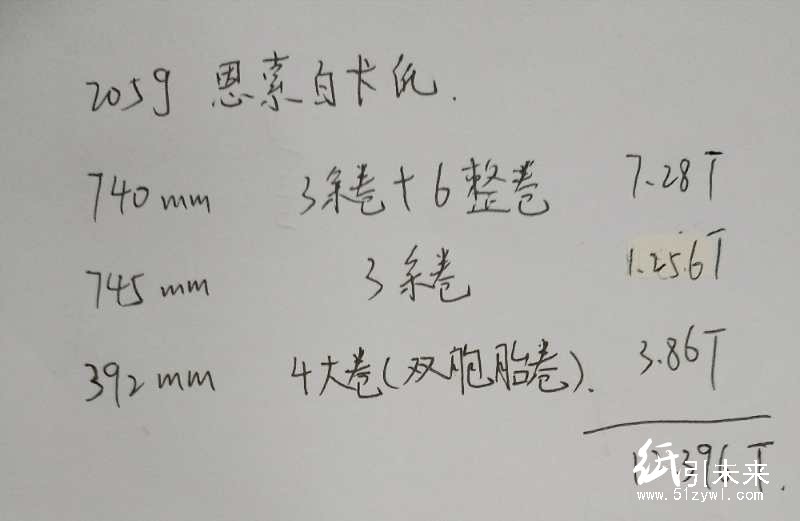 205g 恩索白卡纸.
740mm 3余卷+6整卷 7.28T
745mm 3余卷 1.256T
392mm 4大卷(双胞胎卷). 3.86T
T.
纸引未来
www.51zywl.com